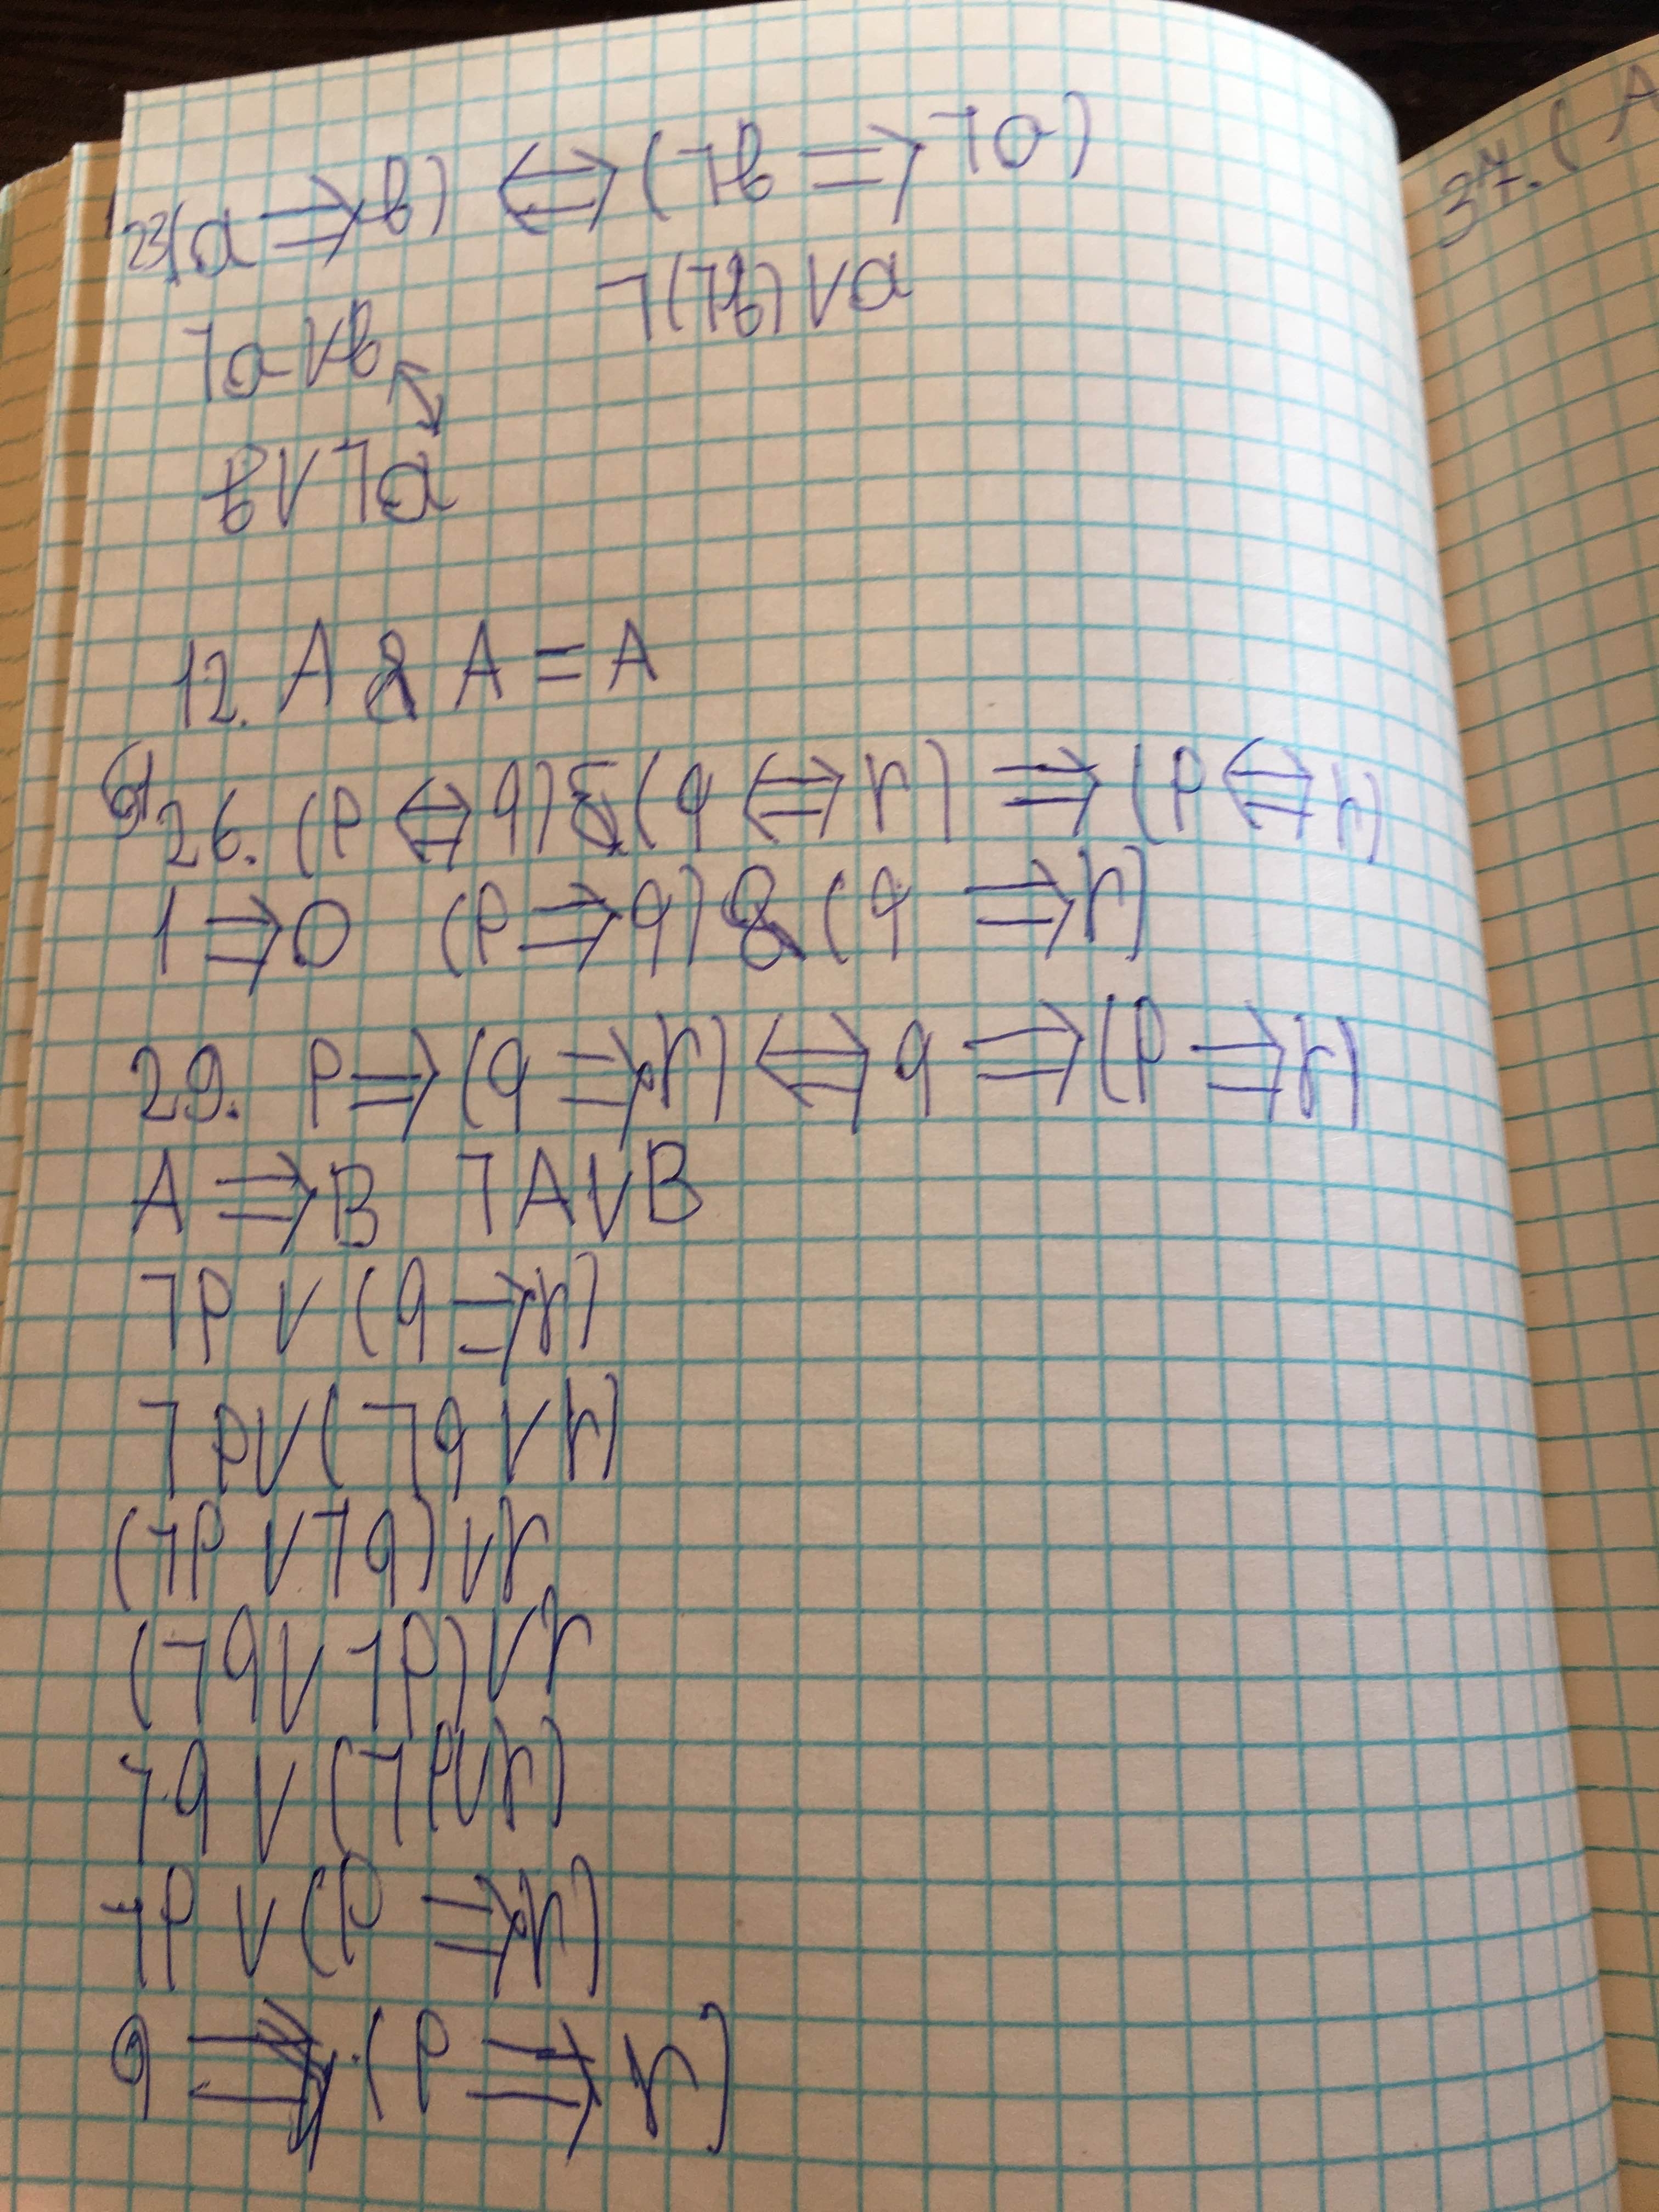 23(a ⇒ b) ⇔ (¬b ⇒ ¬a)
¬a ∨ b ¬(¬b) ∨ a
b ∨ ¬a
12. A & A = A
26. (P ⇔ q) & (q ⇔ r) ⇒ (P ⇔ r)
1 ⇒ 0 (P ⇒ q) & (q ⇒ r)
29. P ⇒ (q ⇒ r) ⇔ q ⇒ (P ⇒ r)
A ⇒ B ¬A ∨ B
¬P ∨ (q ⇒ r)
¬P ∨ (¬q ∨ r)
(¬P ∨ ¬q) ∨ r
(¬q ∨ ¬P) ∨ r
¬q ∨ (¬P ∨ r)
¬P ∨ (P ⇒ r)
q ⇒ (P ⇒ r)
37. ( A